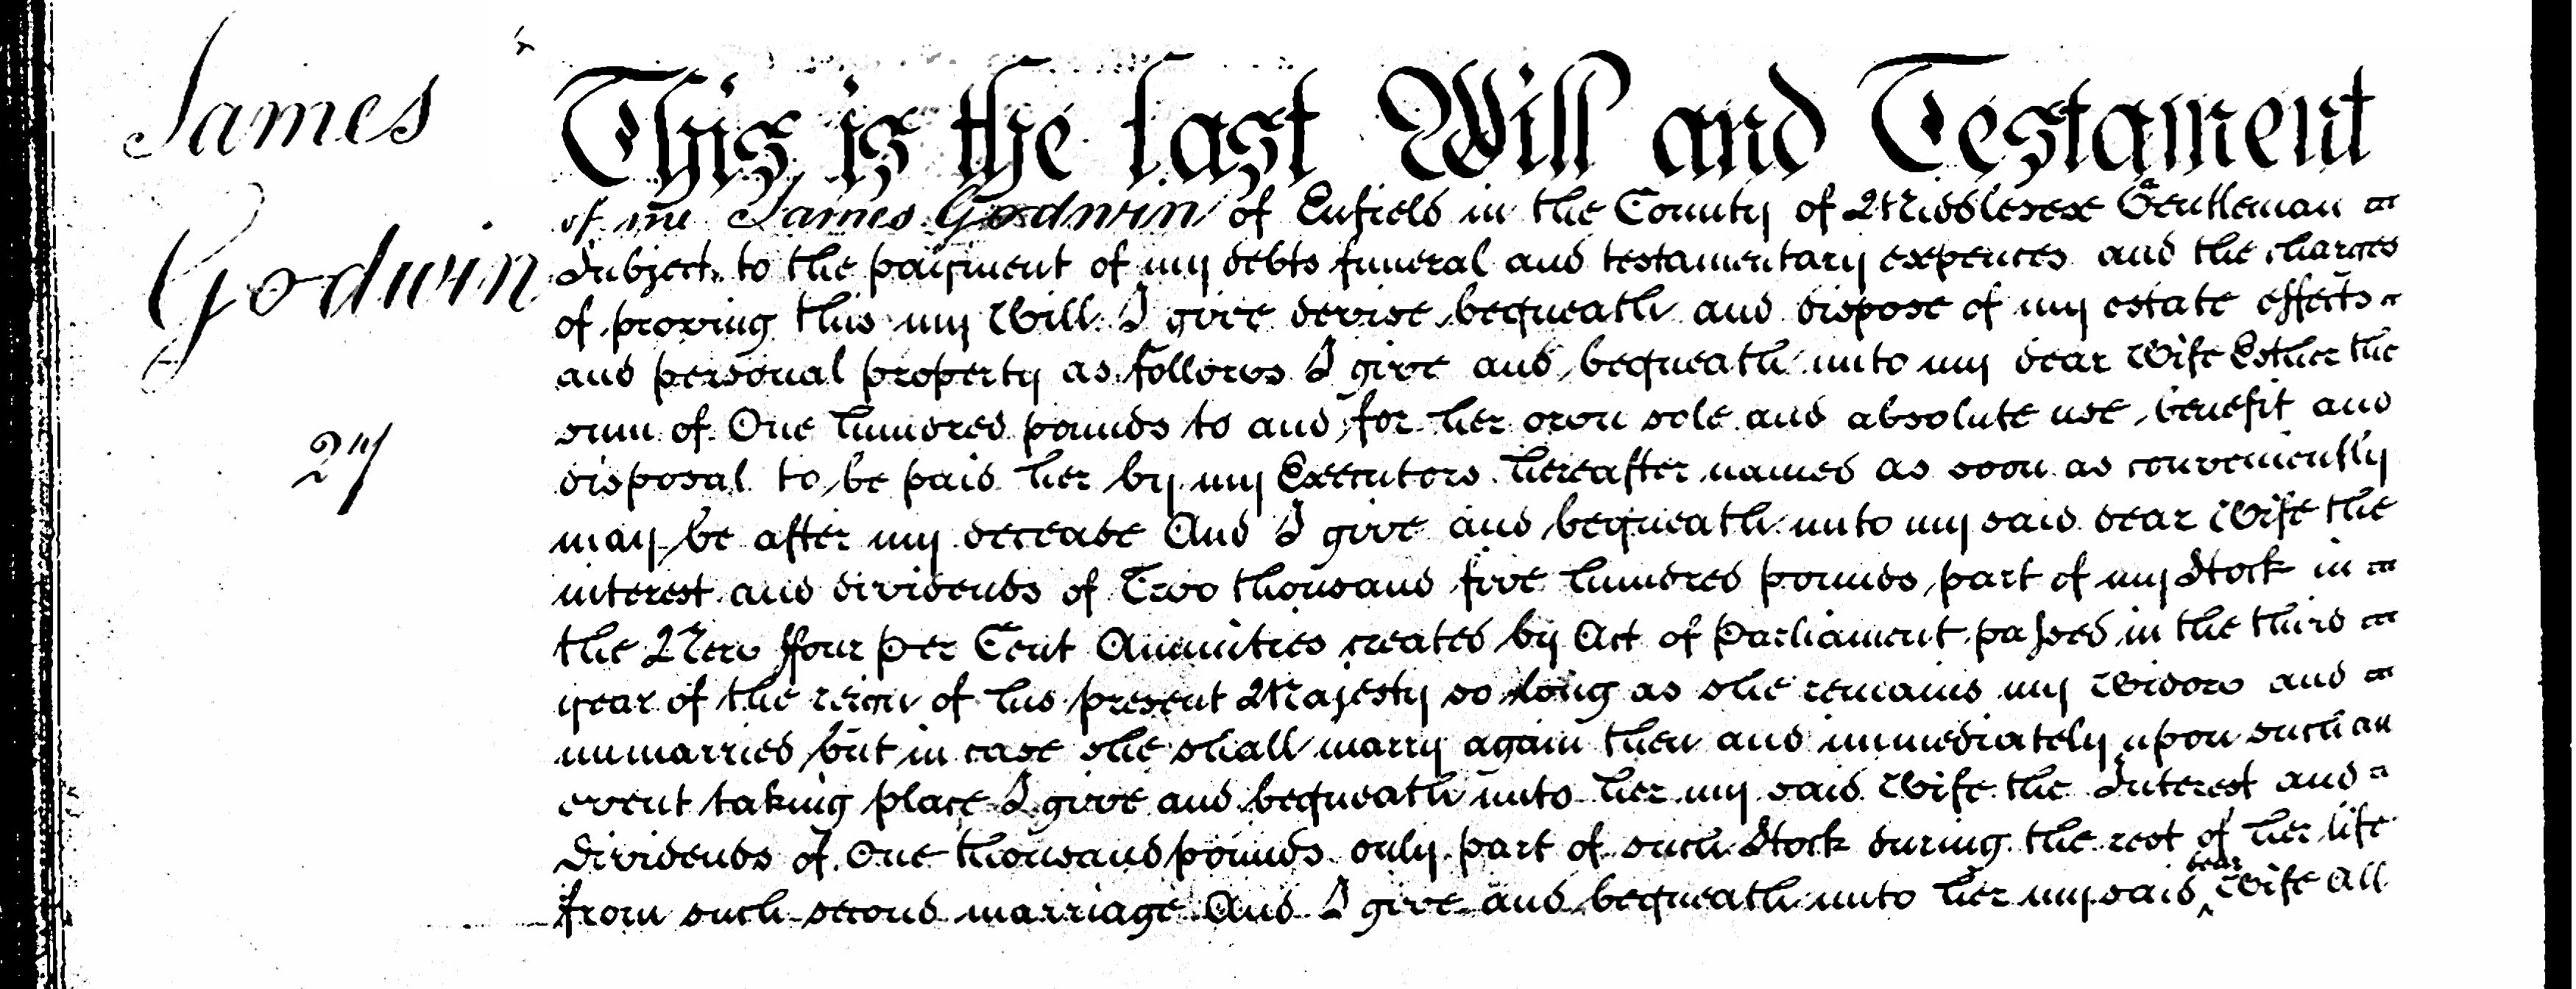 James
Godwin
27
This is the last Will and Testament
of me James Godwin of Enfield in the County of Middlesex Gentleman
Subject to the payment of my debts funeral and testamentary expences and the charges
of proving this my Will I give devise bequeath and dispose of my estate effects
and personal property as follows I give and bequeath unto my dear Wife Esther the
sum of One hundred pounds to and for her own sole and absolute use benefit and
disposal to be paid her by my Executors hereafter named as soon as conveniently
may be after my decease And I give and bequeath unto my said dear Wife the
interest and dividends of Two thousand five hundred pounds part of my Stock in
the New ffour per Cent Annuities created by Act of Parliament passed in the third
year of the reign of his present Majesty so long as she remains my Widow and
unmarried but in case she shall marry again then and immediately upon such an
event taking place I give and bequeath unto her my said Wife the Interest and
Dividends of One thousand pounds only part of such Stock during the rest of her life
from such second marriage And I give and bequeath unto her my said dear Wife All